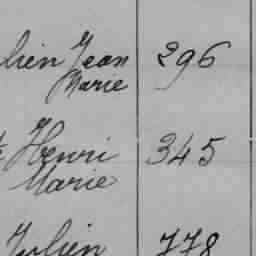 lien Jean 296
Marie
Henri 345
Marie
Julien 778